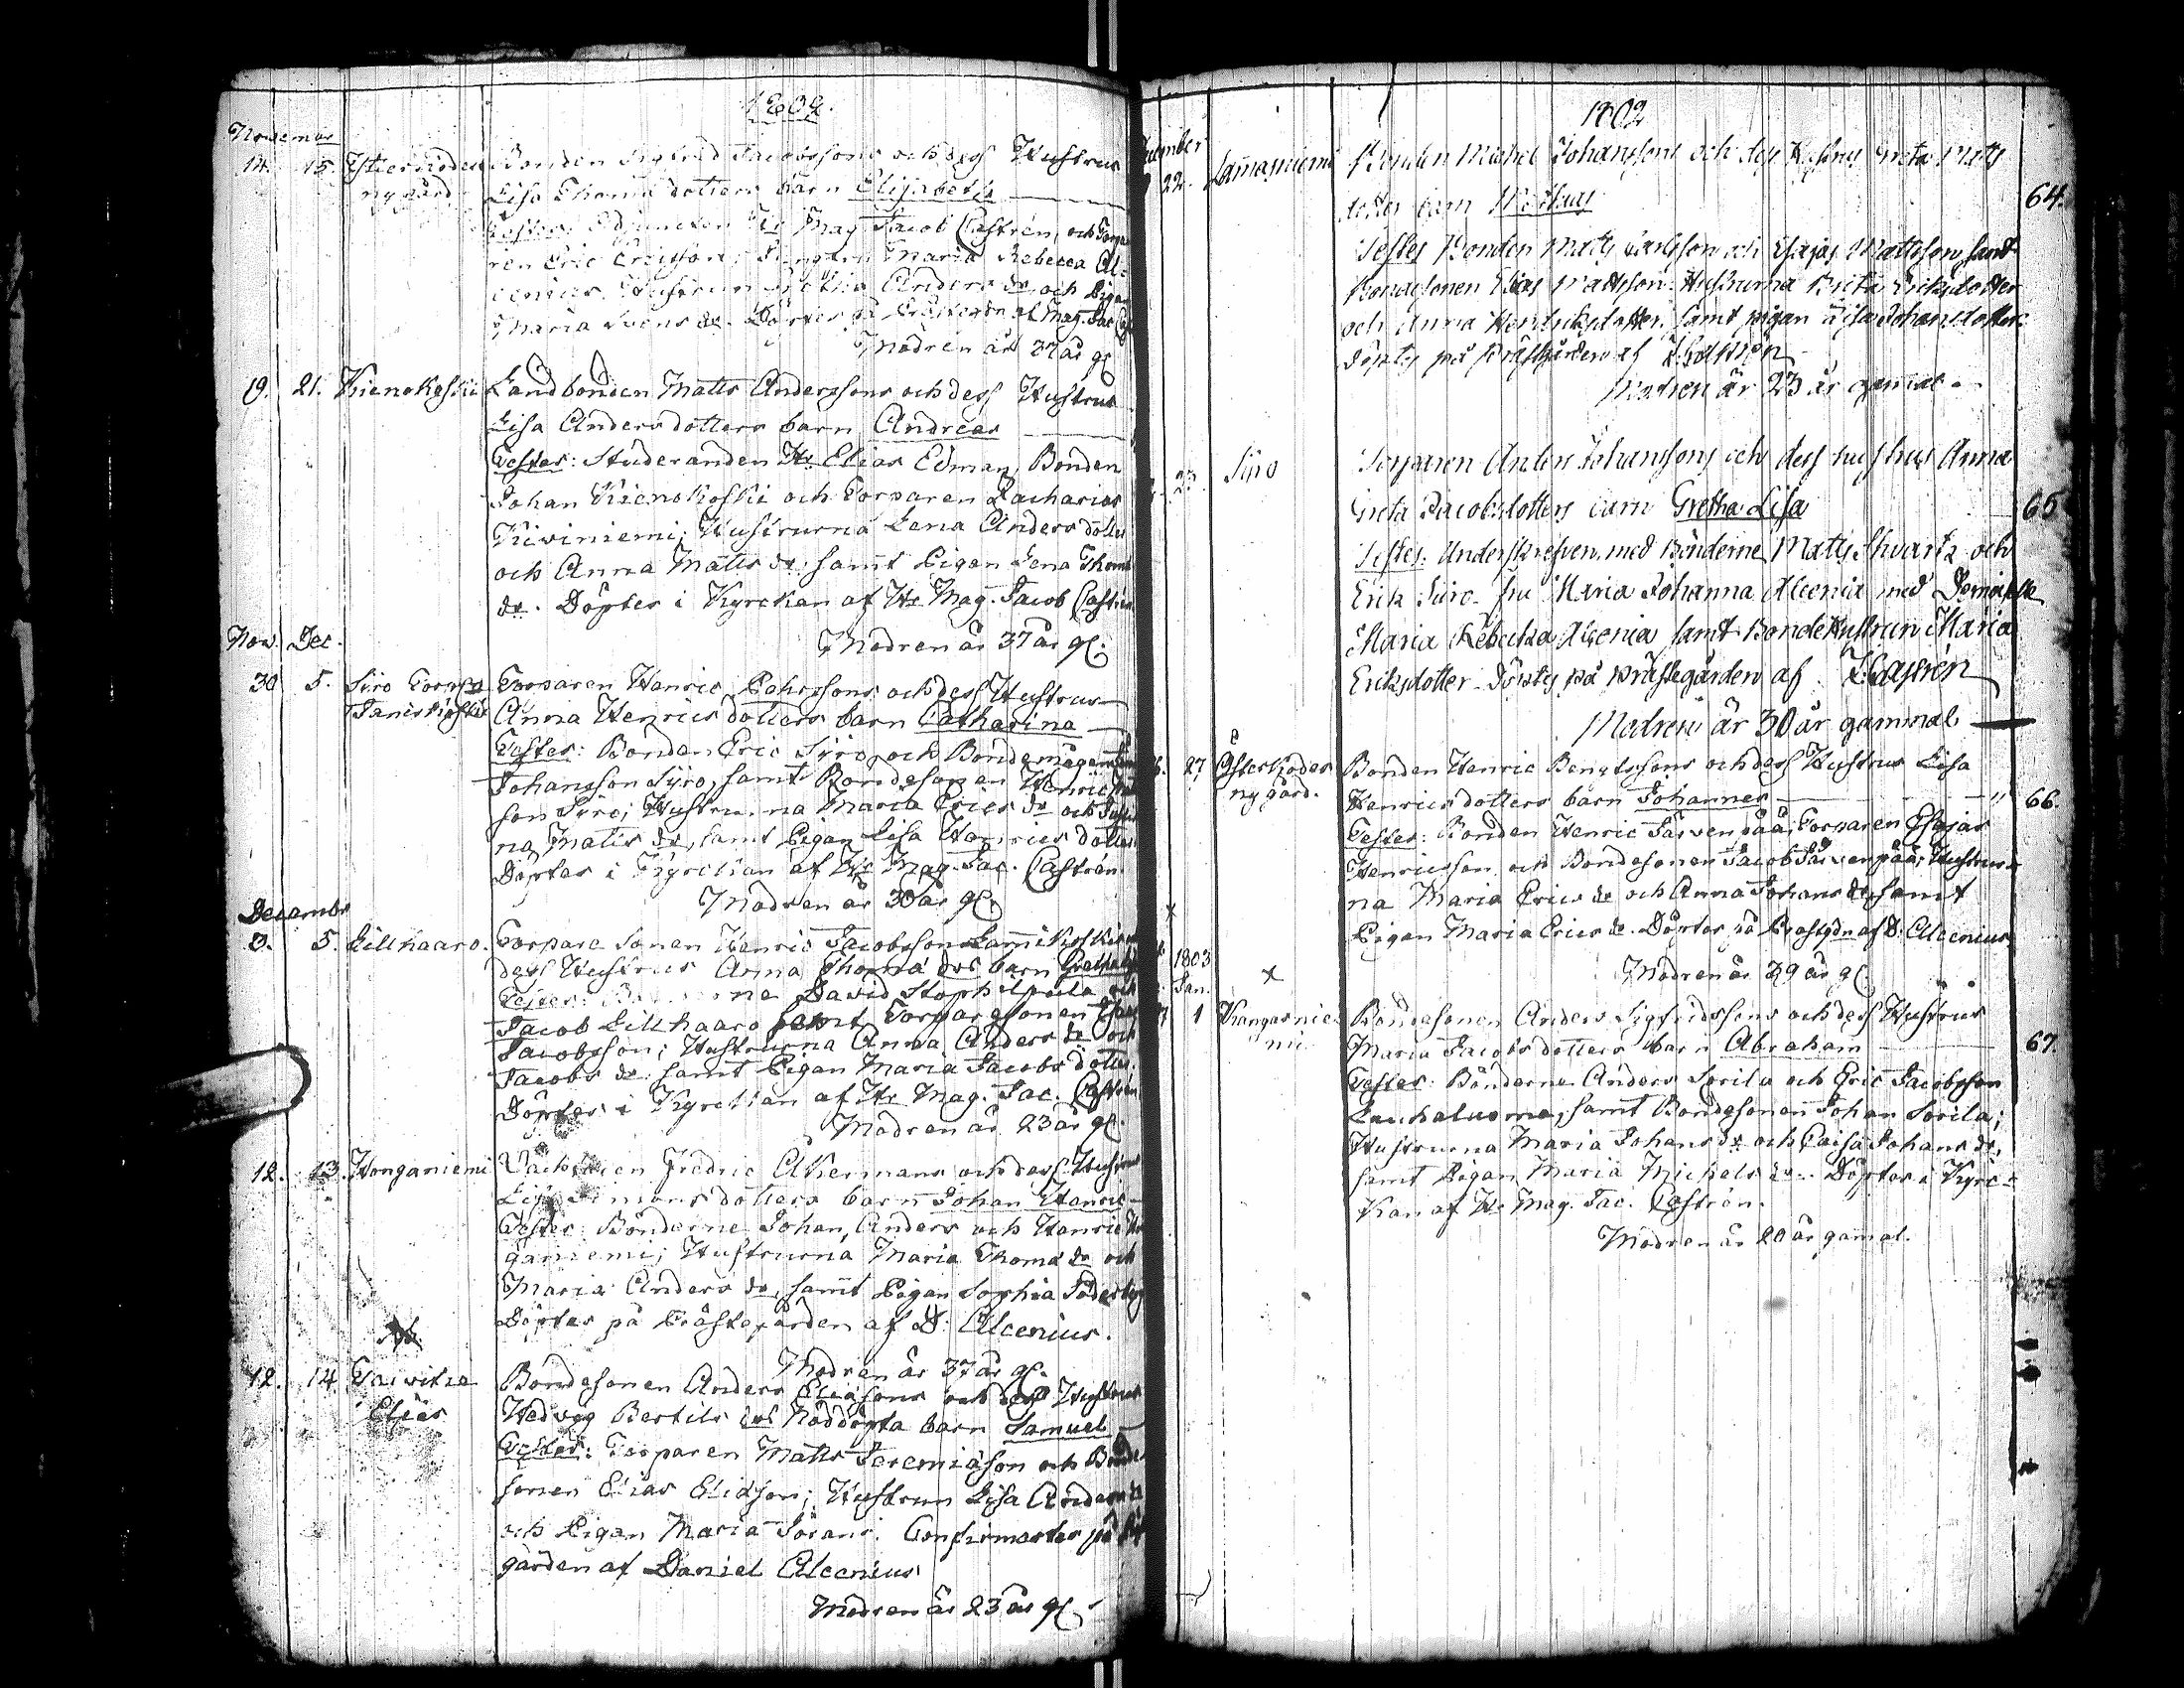 1802.
Novemar
14. 15. Ytter Röden Bonden Sigfrid Jacobssons och dess Hustrus
ny gård Lisa Thomæ dotters barn Elisabeth
Testes: Adjuncten Hr Mag Jacob Castrén, och Torpa
ren Eric Ericsson; Jungfru Maria Rebecca Al-
cenius. Hustrun Gretha Anders dr och Pigan
Maria Svens dr. Döptes på Prästegrdn af Mag. Jac
Modren är 37 år gl
19. 21. Kienokoski Landbonden Matts Anderssons och dess Hustrus
Lisa Andersdotters barn Andreas
Testes: Studeranden Hr Elias Edman, Bonden
Johan Kienokoski och Torparen Zacharias
Kiviniemi; Hustrurna Lena Anders dotter
och Anna Matts dr samt Pigan Lena Thomæ
dr. Döptes i Kyrckan af Hr Mag. Jacob Castrén
Modren är 37 år gl.
Nov. Dec.
30 5. Siro Torpare Torparen Henric Pehrssons och dess Hustrus
Taniskoski Anna Henrics dotters barn Catharina
Testes: Bonden Eric Syro, och Bondemågen
Johansson Syro, samt Bondesonen Henric
son Syro; Hustrurna Maria Erics dr och
na Matts dr, samt Pigan Lisa Henrics dotter
Döptes i Kyrckan af Hr Mag. Jac. Castrén.
Modren är 30 år gl.
Decembr
3. 5. Lillhaaro. Torpare Sonen Henric Jacobsson
dess Hustrus Anna Thomæ drs barn Gretha
Testes: David Stoph och
Jacob Lillhaaro samt Torparesonen Esaias
Jacobsson; Hustrurna Anna Anders dr och
Jacobs dr samt Pigan Maria Jacobs dotter.
Döptes i Kyrckan af Hr Mag. Jac. Castrén
Modren är 23 år gl.
12. 13. Honganiemi Fredric Akermans och dess Hustrus
Lisa Simons dotters barn Johan Henric
Testes: Bönderne Johan, Anders och Henric Hon
ganiemi; Hustrurna Maria Thomæ dr och
Maria Anders dr, samt Pigan Sophia Söderberg
Döptes på Prästegården af D: Alcenius.
Modren är 37 år gl.
12. 14 Bondesonen Anders Eliæsons och dess Hustrus
Elias Hedvig Bertils drs Nöddöpta barn Samuel
Testes: Torparen Matts Jeremiæson och Bonde
sonen Elias Eliæson; Hustrun Lisa Anders dr
och Pigan Maria Görans. Confirmertes på
gården af Daniel Alcenius
Modren är 23 år gl
1802
22. Lamaniemi Bonden Michel Johanssons och dess Hustrus Greta Matts
dotters barn 64.
Testes Bonden Matts och Esajas Mattsson samt
Bondesonen Elias Mattsson. Hustrurna Brita Eriksdotter
och Anna Hendriksdotter, samt pigan Lisa Johansdotter
döpts på prästgården af J: Castrén
Modren är 23 år gammal
23. Syro Torparen Anders Johanssons och dess hustrus Anna
Greta Jacobsdotters barn Gretha Lisa 65
Testes: Underskrefven, med Bönderne Matts Svartz och
Erik Siro. fru Maria Johanna Alcenia med Demoiselle
Maria Rebecka Alcenia samt Bondehustrun Maria
Eriksdotter Döpts på Prästegården af J: Castrén
Modren är 30 år gammal
27 Ytter Röden Bonden Henric Bengtssons och dess Hustrus Lisa
ny gård. Henricsdotters barn Johannes 66.
Testes: Bonden Henric Järvenpää, Torparen Esajas
Henricsson och Bondesonen Jacob Järvenpää; Hustrur-
na Maria Erics dr och Anna Johans dr, samt
Pigan Maria Erics dr. Döptes på Prästgdn af D: Alcenius
Modren är 39 år gl.
1803
Jan.
1 Kangasnie- Bondesonen Anders Sigfridssons och dess Hustrus
mi Maria Jacobsdotters barn Abraham 67.
Testes: Bönderne Anders Sorila och Eric Jacobsson
Lauhaluoma, samt Bondesonen Johan Sorila;
Hustrurna Maria Johans dr och Caisa Johans dr,
samt Pigan Maria Michels dr. Döptes i Kyrc-
kan af Hr Mag. Jac. Castrén.
Modren är 20 år gamal.